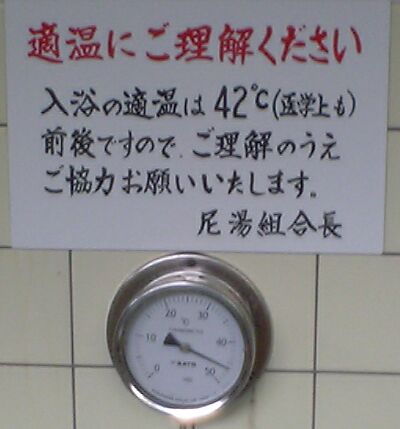 適温にご理解ください
入浴の適温は42℃(医学上も)
前後ですので、ご理解のうえ
ご協力お願いいたします。
尻湯組合長
0
10
20
30
40
50
℃